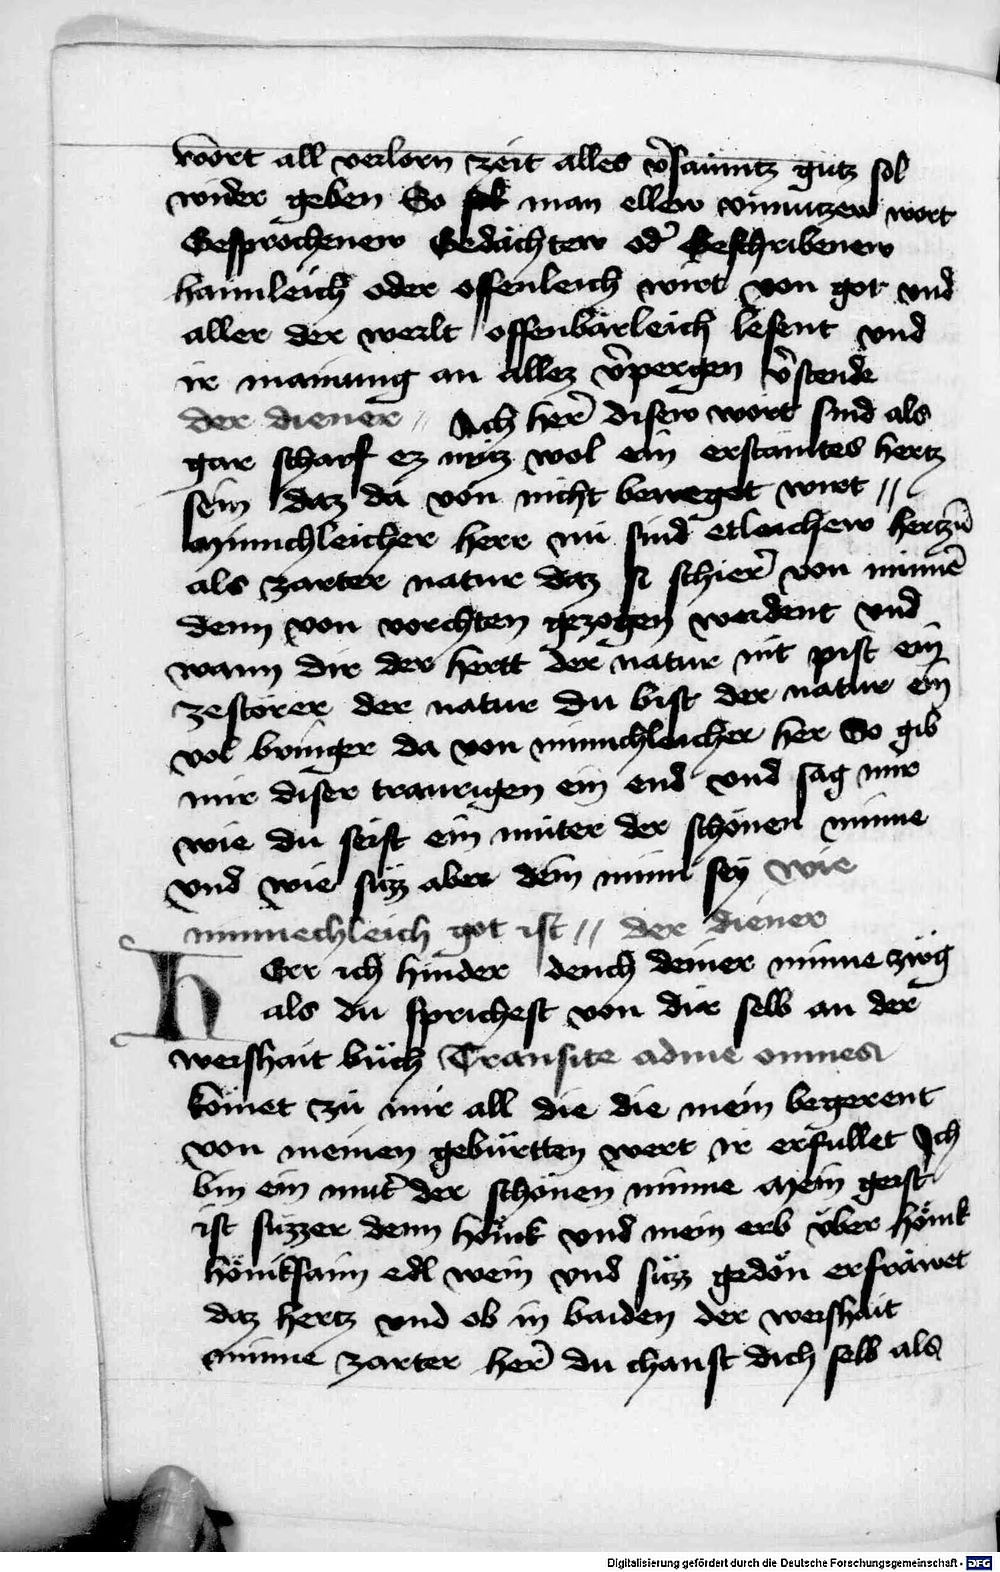 wort all verlorn zeit alles v̉saumtz gutz sol
wider geben So man ellew vnnutzew wort
Gesprochenew Gedächtew od̉ Geschribenew
haimleich oder offenleich wirt von got vnd
aller der werlt offenbärleich lesent vnd
ir mainung an allez v̉pergen v̉stende
der diener // Ach her̉ disew wort sind als
gar scharf ez müz wol ein erstaintes hertz
sein daz da von nicht beweget wirt //
Minnichleicher herr nu sind etleichew hertzn̄
als zarter natur daz si schier̉ von minnē
denn von vorchten gezogen werdent vnd
wann dir der hertt der natur nit pist ein
zestörer der natur du bist der natur ein
vol bringer da von minnichleicher her So gib
mir diser traurigen ein end vnd sag mir
wie du seist ein muter der schönen minne
vnd wie süzz aber dein minn sey wie
minnechleich got ist // der diener
HErr ich hinder dench deiner minne züg
als du sprichest von dir selb an der
weishait büch Transite adme omnes
kömet zü mir all die die mein begerent
von meinen gebürtten wert ir erfüllet Ich
bin ein mut̉ der schönen minne Mein geist
ist süzzer denn hönik vnd mein erb über hönik
hönikfaim edl wein vnd süzz gedön erfräwet
daz hertz vnd ob in baiden der weishait
minne zarter her̉ du chanst dich selb als
Digitalisierung gefördert durch die Deutsche Forschungsgemeinschaft - DFG